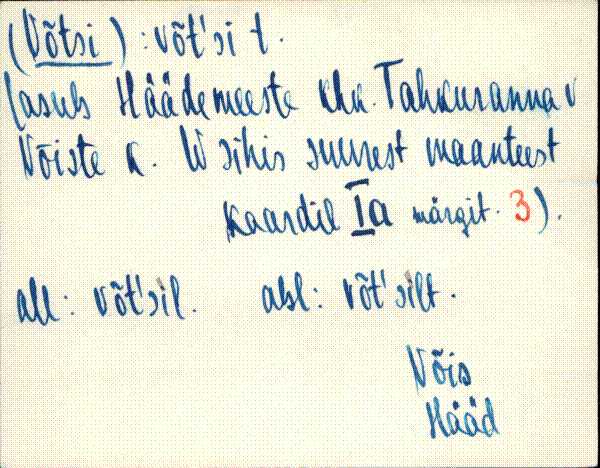 (Võtsi) : võt'si t.
(asub Häädemeeste khk. Tahkuranna v
Võiste k. W sihis suurest maanteest
kaardil Ia märgit. 3).
all: võt'sil. abl: võt'silt.
Võis
Hääd